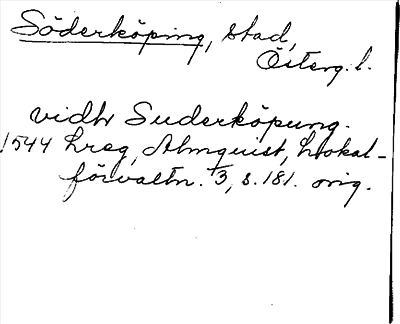 Söderköping, stad,
Österg. l.
vidh Suderköpung.
1544 hreg, Almquist, Lokal-
förvaltn. 3, s. 181. orig.